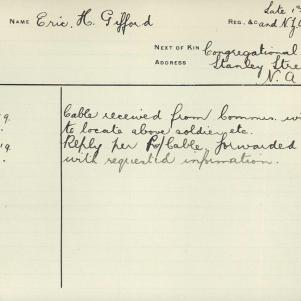 Late 1st
NAME Eric. H. Gifford REG. &c and N.Z.
NEXT OF KIN Congregational
ADDRESS Stanley Stre
N. A
9. Cable received from Commrs. wi
to locate above soldier, etc.
19. Reply per Cable, forwarded
with requested information.